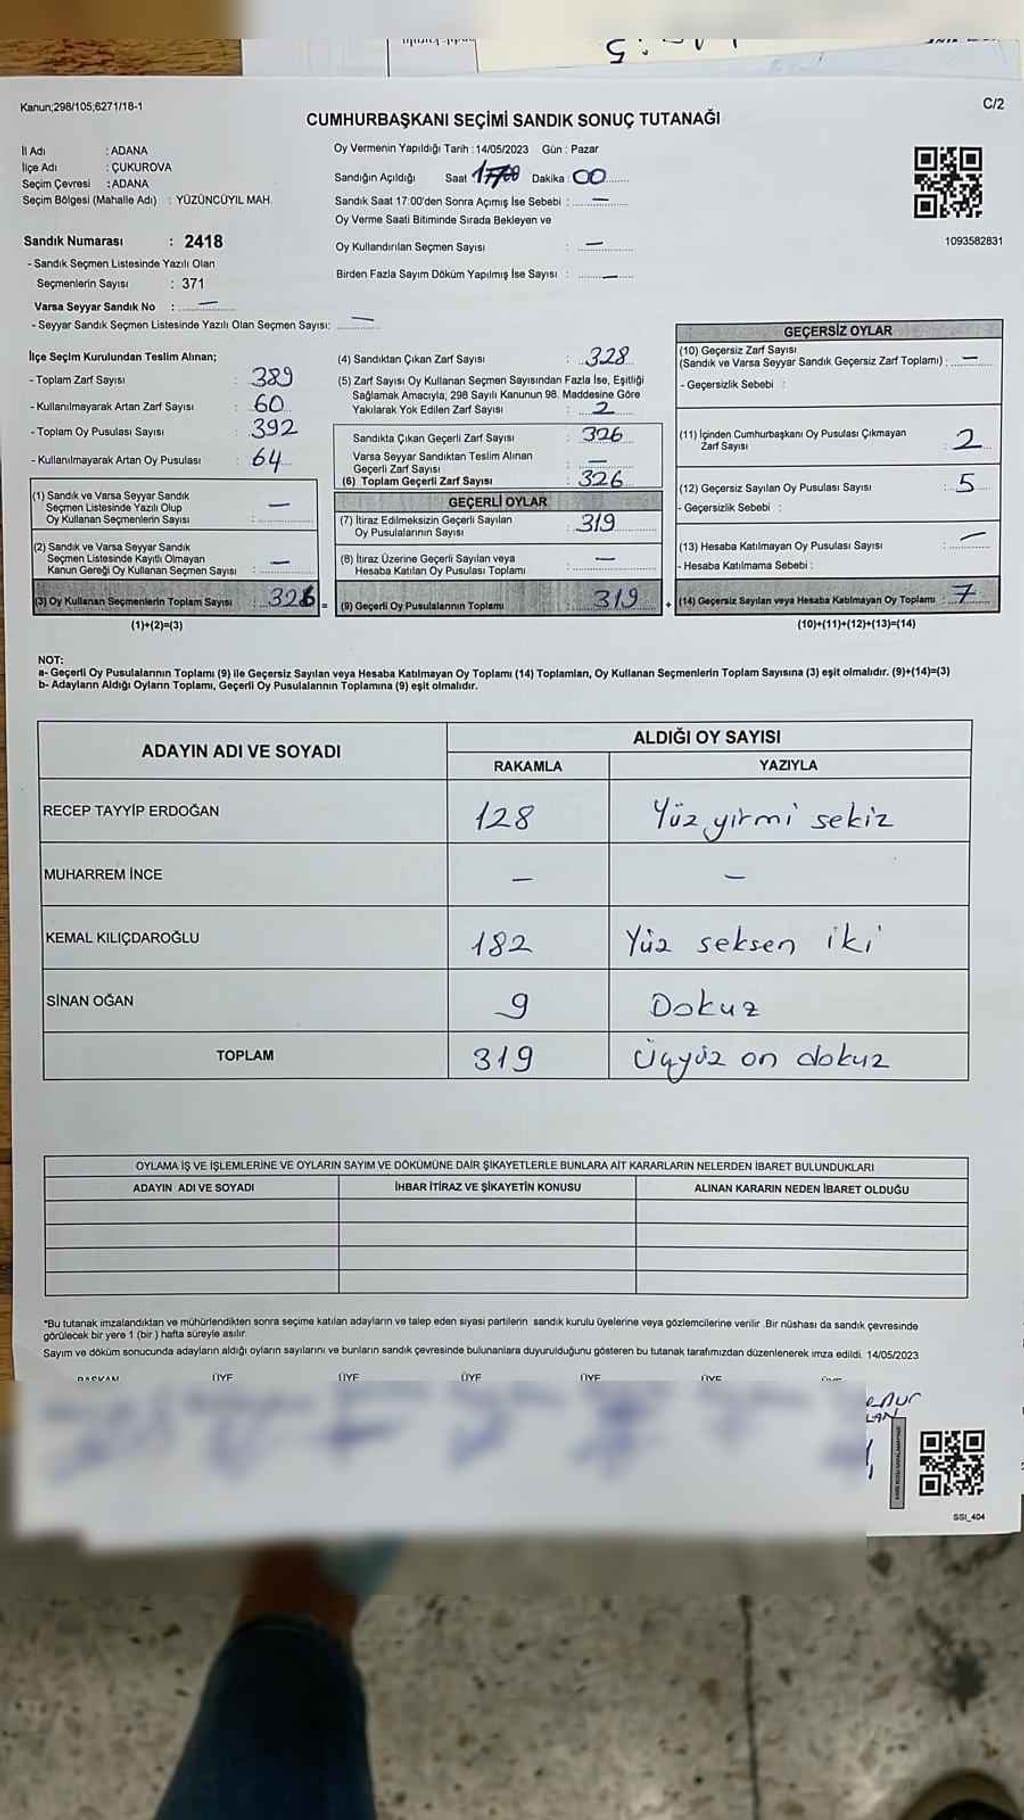 Kanun;298/105;6271/18-1
C/2
CUMHURBAŞKANI SEÇİMİ SANDIK SONUÇ TUTANAĞI
İl Adı : ADANA
İlçe Adı : ÇUKUROVA
Seçim Çevresi : ADANA
Seçim Bölgesi (Mahalle Adı) : YÜZÜNCÜYIL MAH.
Oy Vermenin Yapıldığı Tarih : 14/05/2023 Gün : Pazar
Sandığın Açıldığı Saat Dakika : 00
Sandık Saat 17:00'den Sonra Açımış İse Sebebi : —
Oy Verme Saati Bitiminde Sırada Bekleyen ve
Oy Kullandırılan Seçmen Sayısı : —
Birden Fazla Sayım Döküm Yapılmış İse Sayısı : —
1093582831
Sandık Numarası : 2418
- Sandık Seçmen Listesinde Yazılı Olan
Seçmenlerin Sayısı : 371
Varsa Seyyar Sandık No : —
- Seyyar Sandık Seçmen Listesinde Yazılı Olan Seçmen Sayısı: —
İlçe Seçim Kurulundan Teslim Alınan;
- Toplam Zarf Sayısı : 389
- Kullanılmayarak Artan Zarf Sayısı : 60
- Toplam Oy Pusulası Sayısı : 392
- Kullanılmayarak Artan Oy Pusulası : 64
(1) Sandık ve Varsa Seyyar Sandık
Seçmen Listesinde Yazılı Olup
Oy Kullanan Seçmenlerin Sayısı : —
(2) Sandık ve Varsa Seyyar Sandık
Seçmen Listesinde Kayıtlı Olmayan
Kanun Gereği Oy Kullanan Seçmen Sayısı : —
(3) Oy Kullanan Seçmenlerin Toplam Sayısı : 326 =
(1)+(2)=(3)
(4) Sandıktan Çıkan Zarf Sayısı : 328
(5) Zarf Sayısı Oy Kullanan Seçmen Sayısından Fazla İse, Eşitliği
Sağlamak Amacıyla; 298 Sayılı Kanunun 98. Maddesine Göre
Yakılarak Yok Edilen Zarf Sayısı : 2
Sandıkta Çıkan Geçerli Zarf Sayısı : 326
Varsa Seyyar Sandıktan Teslim Alınan
Geçerli Zarf Sayısı : —
(6) Toplam Geçerli Zarf Sayısı : 326
GEÇERLİ OYLAR
(7) İtiraz Edilmeksizin Geçerli Sayılan
Oy Pusulalarının Sayısı : 319
(8) İtiraz Üzerine Geçerli Sayılan veya
Hesaba Katılan Oy Pusulası Toplamı : —
(9) Geçerli Oy Pusulalarının Toplamı : 319 +
GEÇERSİZ OYLAR
(10) Geçersiz Zarf Sayısı
(Sandık ve Varsa Seyyar Sandık Geçersiz Zarf Toplamı) : —
- Geçersizlik Sebebi :
(11) İçinden Cumhurbaşkanı Oy Pusulası Çıkmayan
Zarf Sayısı : 2
(12) Geçersiz Sayılan Oy Pusulası Sayısı : 5
- Geçersizlik Sebebi :
(13) Hesaba Katılmayan Oy Pusulası Sayısı : —
- Hesaba Katılmama Sebebi :
(14) Geçersiz Sayılan veya Hesaba Katılmayan Oy Toplamı : 7
(10)+(11)+(12)+(13)=(14)
NOT:
a- Geçerli Oy Pusulalarının Toplamı (9) ile Geçersiz Sayılan veya Hesaba Katılmayan Oy Toplamı (14) Toplamları, Oy Kullanan Seçmenlerin Toplam Sayısına (3) eşit olmalıdır. (9)+(14)=(3)
b- Adayların Aldığı Oyların Toplamı, Geçerli Oy Pusulalarının Toplamına (9) eşit olmalıdır.
ADAYIN ADI VE SOYADI
ALDIĞI OY SAYISI
RAKAMLA YAZIYLA
RECEP TAYYİP ERDOĞAN 128 Yüz yirmi sekiz
MUHARREM İNCE — —
KEMAL KILIÇDAROĞLU 182 Yüz seksen iki
SİNAN OĞAN 9 Dokuz
TOPLAM 319 Üçyüz on dokuz
OYLAMA İŞ VE İŞLEMLERİNE VE OYLARIN SAYIM VE DÖKÜMÜNE DAİR ŞİKAYETLERLE BUNLARA AİT KARARLARIN NELERDEN İBARET BULUNDUKLARI
ADAYIN ADI VE SOYADI İHBAR İTİRAZ VE ŞİKAYETİN KONUSU ALINAN KARARIN NEDEN İBARET OLDUĞU
*Bu tutanak imzalandıktan ve mühürlendikten sonra seçime katılan adayların ve talep eden siyasi partilerin sandık kurulu üyelerine veya gözlemcilerine verilir. Bir nüshası da sandık çevresinde
görülecek bir yere 1 (bir) hafta süreyle asılır.
Sayım ve döküm sonucunda adayların aldığı oyların sayılarını ve bunların sandık çevresinde bulunanlara duyurulduğunu gösteren bu tutanak tarafımızdan düzenlenerek imza edildi. 14/05/2023
BAŞKAN ÜYE ÜYE ÜYE ÜYE ÜYE
SSI_404